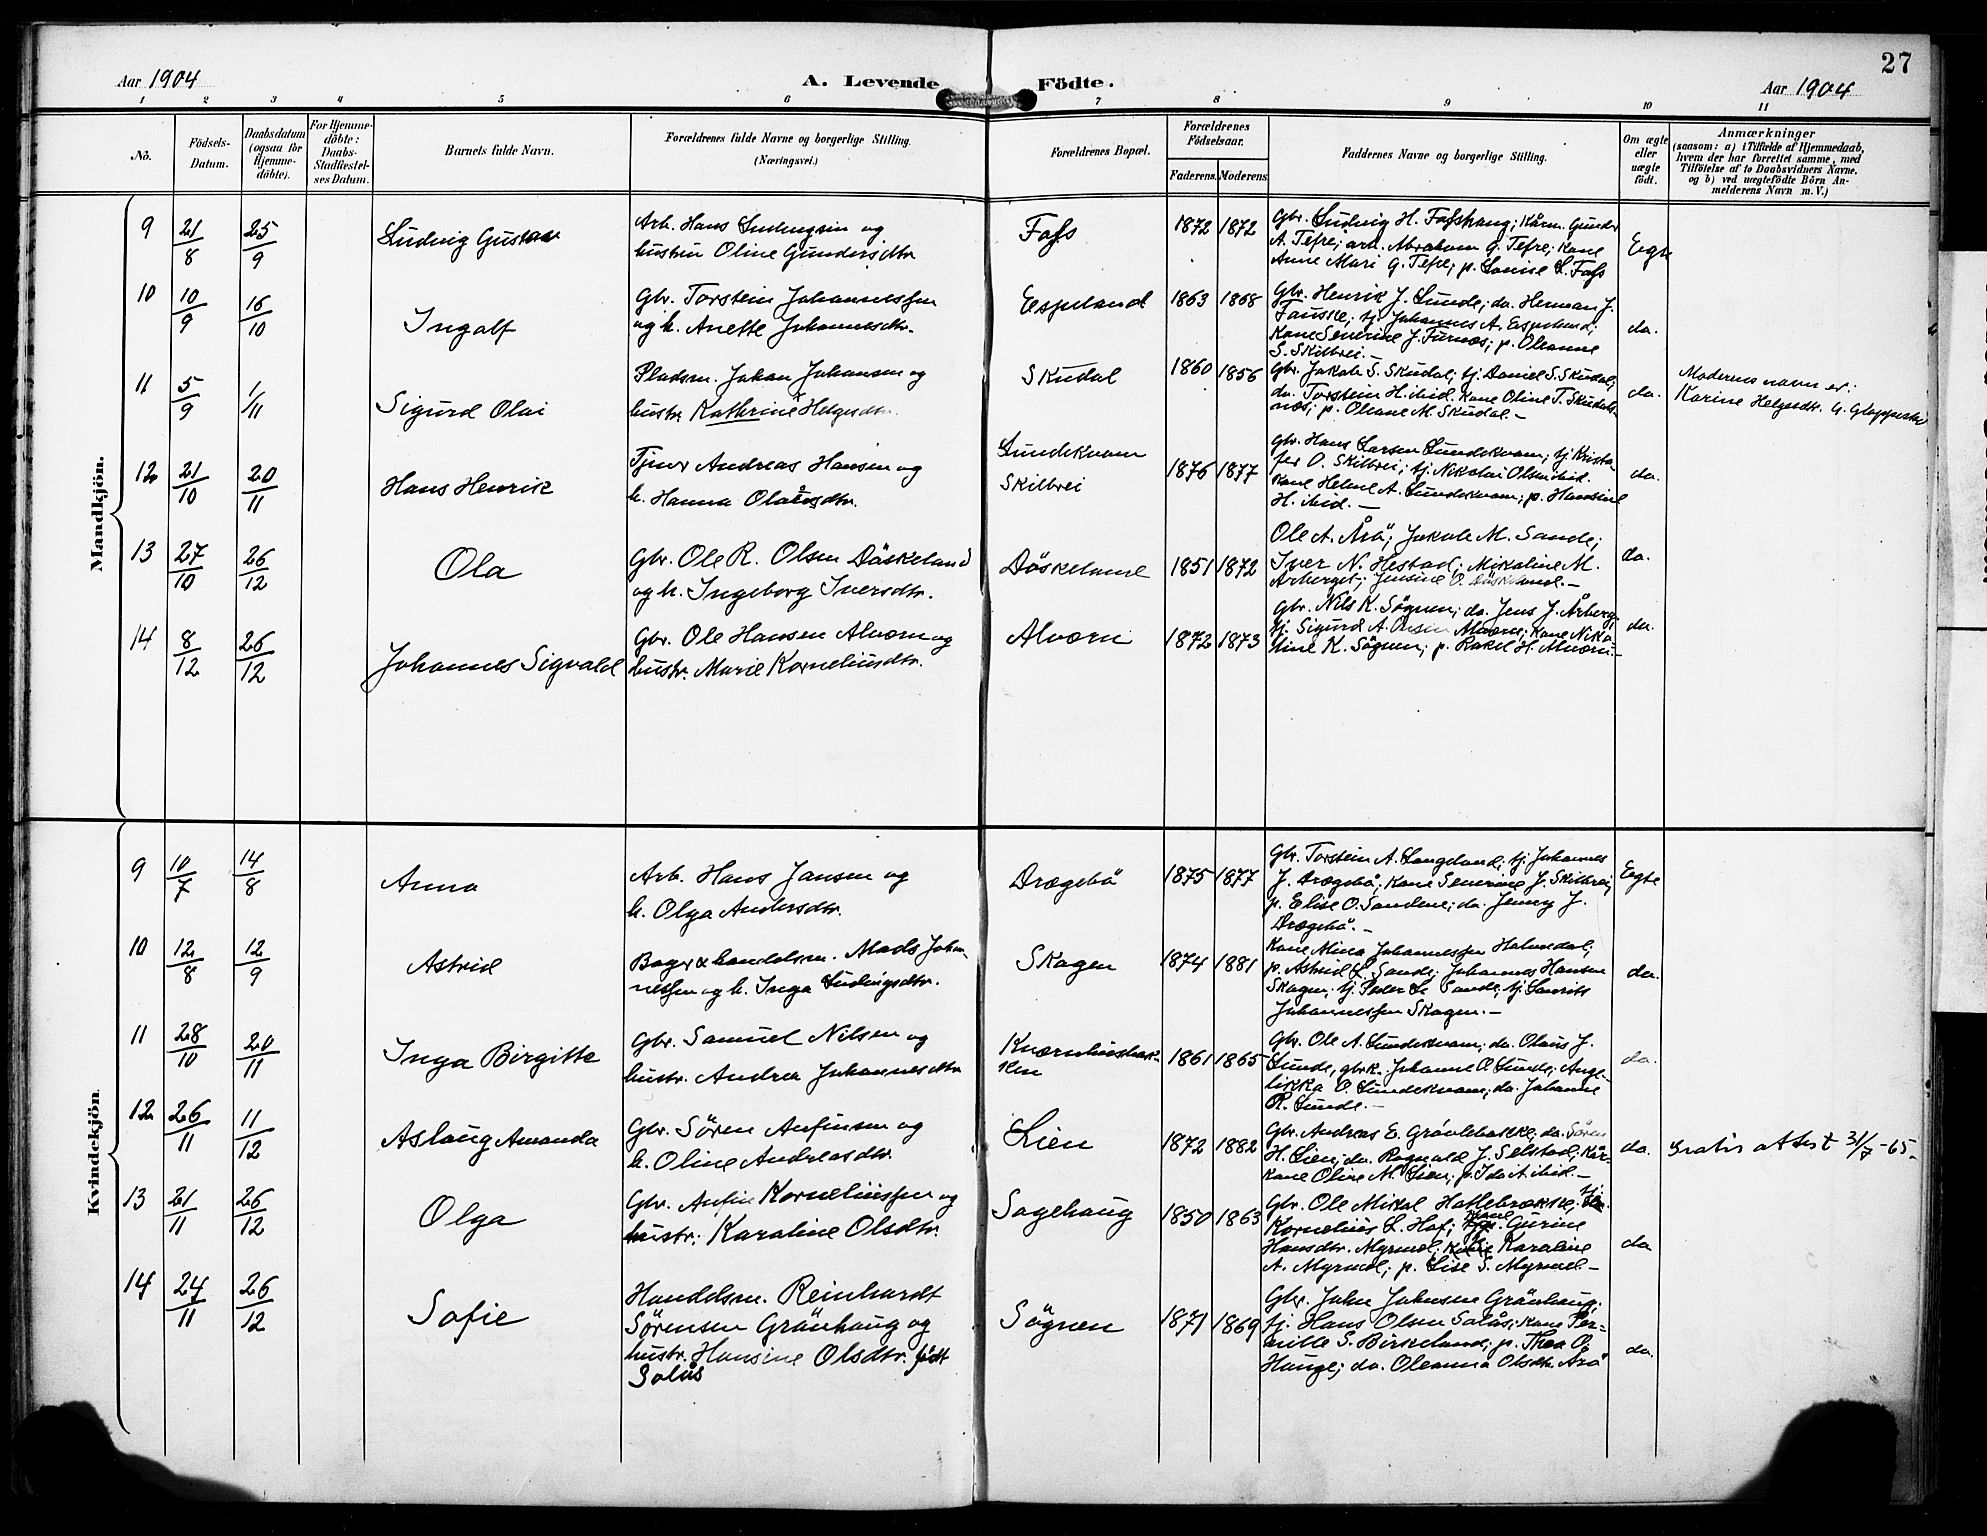 27
Aar 1904
A. Levende Födte.
Aar 1904
1 2 3 4 5 6 7 8 9 10 11
No.
Födsels-
Datum.
Daabsdatum
(ogsaa for
Hjemme-
döbte).
For Hjemme-
döbte:
Daabs-
Stadfæstel-
ses Datum.
Barnets fulde Navn.
Forældrenes fulde Navne og borgerlige Stilling.
(Næringsvei.)
Forældrenes Bopæl.
Forældrenes
Födselsaar.
Faderens. Moderens.
Faddernes Navne og borgerlige Stilling.
Om ægte
eller
uægte
födt.
Anmærkninger
(saasom: a) i Tilfælde af Hjemmedaab,
hvem der har forrettet samme, med
Tilföielse af to Daabsvidners Navne,
og b) ved uægtefödte Börn An-
melderens Navn m. V.)
Mandkjön.
9 21/8 25/9 Ludvig Gustav
Arb. Hans Ludvigsen og
hustru Oline Gundersdtr.
Fafs 1872 1872
Gbr. Ludvig H. Fafshaug; Kårm. Gunder
A. Tefre; arb. Abraham G. Tefre; Kone
Anne Mari G. Tefre; p. Lovise L. Fafs
Egte
10 10/9 16/10 Ingolf
Gbr. Torstein Johannessen
og h. Anette Johannesdtr.
Espeland 1863 1868
Gbr. Henrik J. Sunde; do. Herman J.
Fauske; tj. Johannes A. Espeland;
Kone Severine J. Furnæs; p. Oleanne
S. Skilbrei.—
do.
11 5/9 1/11 Sigurd Olai
Pladsm. Johan Johansen og
hustr. Kathrine x Helgesdtr.
Skudal 1860 1856
Gbr. Jakob S. Skudal; tj. Daniel S. Skudal;
do. Torstein H. ibid. Kone Oline T. Skudals-
næs; p. Oliane M. Skudal.—
do.
Moderens navn er:
Karine Helgesdtr.
12 21/10 20/11 Hans Henrik
Tjener Andreas Hansen og
h. Hanna Olaisdtr.
Sundekvam
Skilbrei
1876 1877
Gbr. Hans Larsen Sundekvam; tj. Krista-
fer O. Skilbrei; tj. Nikolai Olsen ibid.
Kone Helene A. Sundekvam; p. Hansine
H. ibid.—
do.
13 27/10 26/12 Ola
Gbr. Ole R. Olsen Döskeland
og h. Ingeborg Iversdtr.
Döskeland 1851 1872
Ole A. Årö; Jakob M. Sande;
Iver N. Hestad; Mikaline M.
Arberget; Jensine O. Döskeland.—
do.
14 8/12 26/12 Johannes Sigvald
Gbr. Ole Hansen Alværn og
hustr. Marie Korneliusdtr.
Alværn 1872 1873
Gbr. Nils K. Sögnen; do. Jens J. Årberg;
tj. Sigurd A. Alværn; Kone Niko-
line K. Sögnen; p. Rakel H. Alværn.—
do.
Kvindekjön.
9 10/7 14/8 Anna
Arb. Hans Jansen og
h. Olga Andersdtr.
Drægebö 1875 1877
Gbr. Torstein A. Langeland; tj. Johannes
J. Drægebö; Kone Severine J. Skilbrei;
p. Elise O. Sandene; do. Jenny J.
Drægebö.—
Egte
10 12/8 12/9 Astrid
Bager & handelsm. Mads Johan-
nessen og h. Inga Ludvigsdtr.
Skogen 1874 1881
Kone Mina Johannessen Holmedal;
p. Astrid L. Sande; Johannes Hansen
Skogen; tj. Peder L. Sande; tj. Laurits
Johannessen Skogen.—
do.
11 28/10 20/11 Inga Birgitte
Gbr. Samuel Nilsen og
hustr. Andrea Johannesdtr.
Kværnhusbak-
ken
1861 1865
Gbr. Ole A. Sundekvam; do. Olaus J.
Sunde, gbrk. Johanne O. Sunde; Ange-
likka O. Sundekvam; do. Johanne
R. Sunde.—
do.
12 26/11 11/12 Aslaug Amanda
Gbr. Sören Anfinsen og
h. Oline Andreasdtr.
Lien 1872 1882
Gbr. Andreas E. Grövlebakke; do. Sören
H. Lien; do. Ragnvald J. Selstad; Kår-
kone Oline M. Lien; p. Ida A. ibid.—
do.
Gratis attest 31/7-65.
13 21/11 26/12 Olga
Gbr. Anfin Korneliussen og
hustr. Karoline Olsdtr.
Sagehaug 1850 1863
Gbr. Ole Mikal Hatlebrække; tj.
Kornelius L. Hof; Kone Gurine
Hansdtr. Myrmel; Karoline
A. Myrmel; p. Lise S. Myrmel—
do
14 24/11 26/12 Sofie
Handelsm. Reinhardt
Sörensen Grönhaug og
hustr. Hansine Olsdtr. födt
Solås
Sögnen 1871 1869
Gbr. John Johnsen Grönhaug;
tj. Hans Olsen Solås; Kone Per-
nille S. Birkeland; p. Thea O.
Hauge; do. Oleanna Olsdtr. Årö
do.